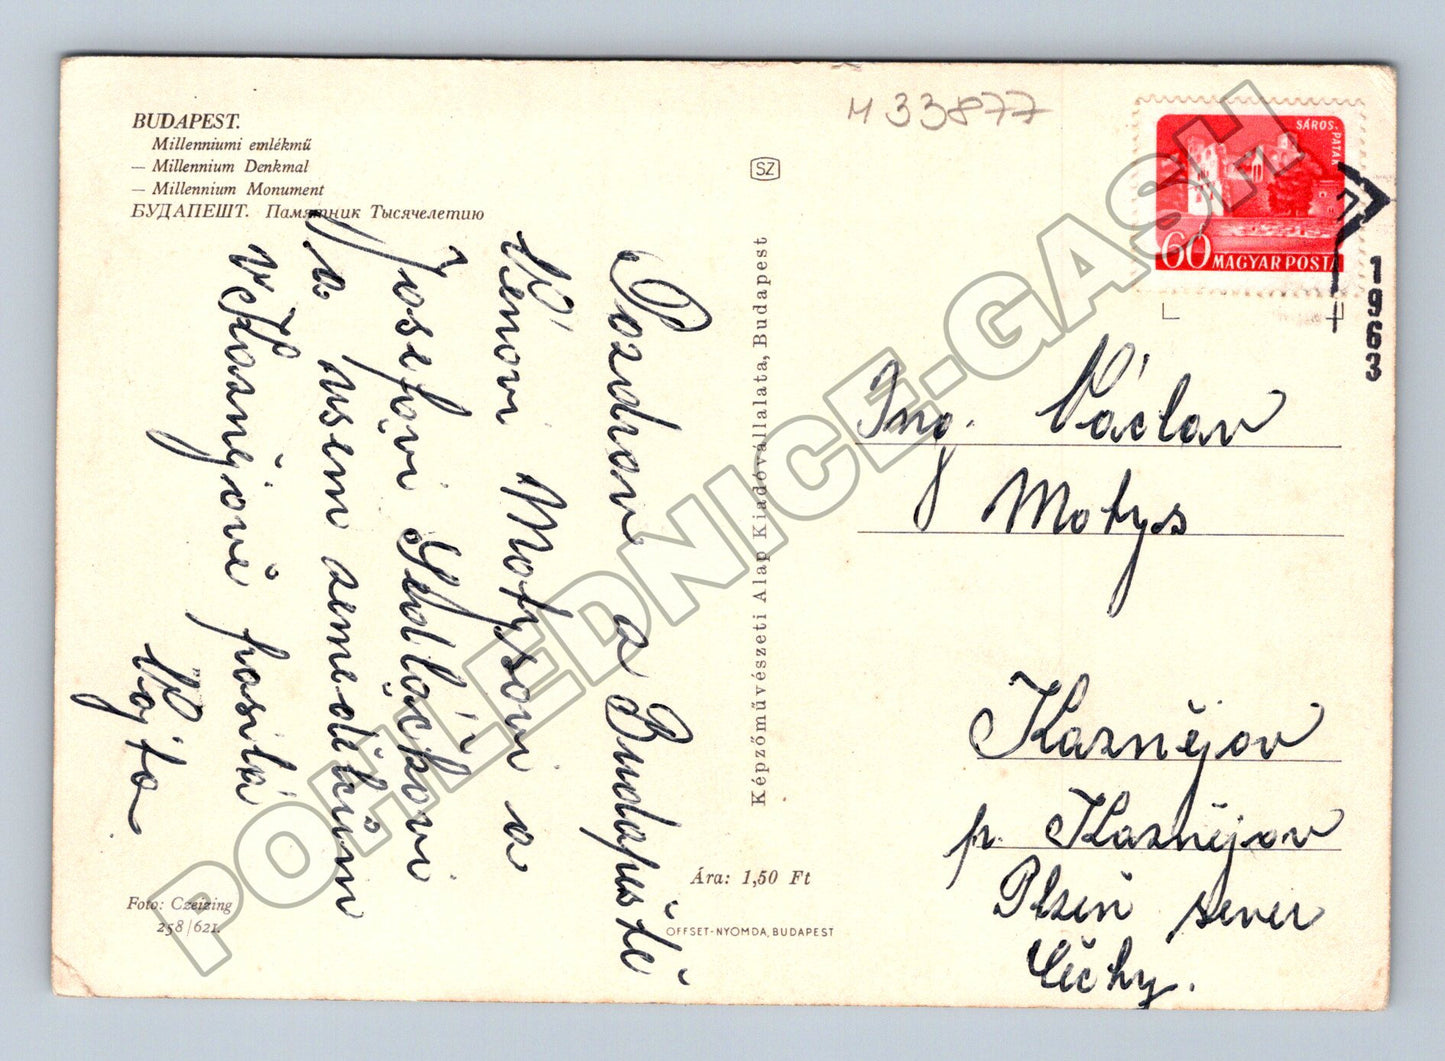 BUDAPEST.
Millenniumi emlékmű
— Millennium Denkmal
— Millennium Monument
БУДАПЕШТ. Памятник Тысячелетию
M 33877
SZ
SÁROS-PATAK
60 MAGYAR POSTA
1963
Pozdrav a Budapešti
Motysovi a
Josefovi Sedláčkovi
a všem zemědělcům
v Kaznějově posílá
Vojta
Képzőművészeti Alap Kiadóvállalata, Budapest
Ing. Václav
Motys
Kaznějov
p. Kaznějov
Plzeň sever
Čechy.
Ára: 1,50 Ft
Foto: Czeizing
258/621.
OFFSET-NYOMDA, BUDAPEST
POHLEDNICE.GASH